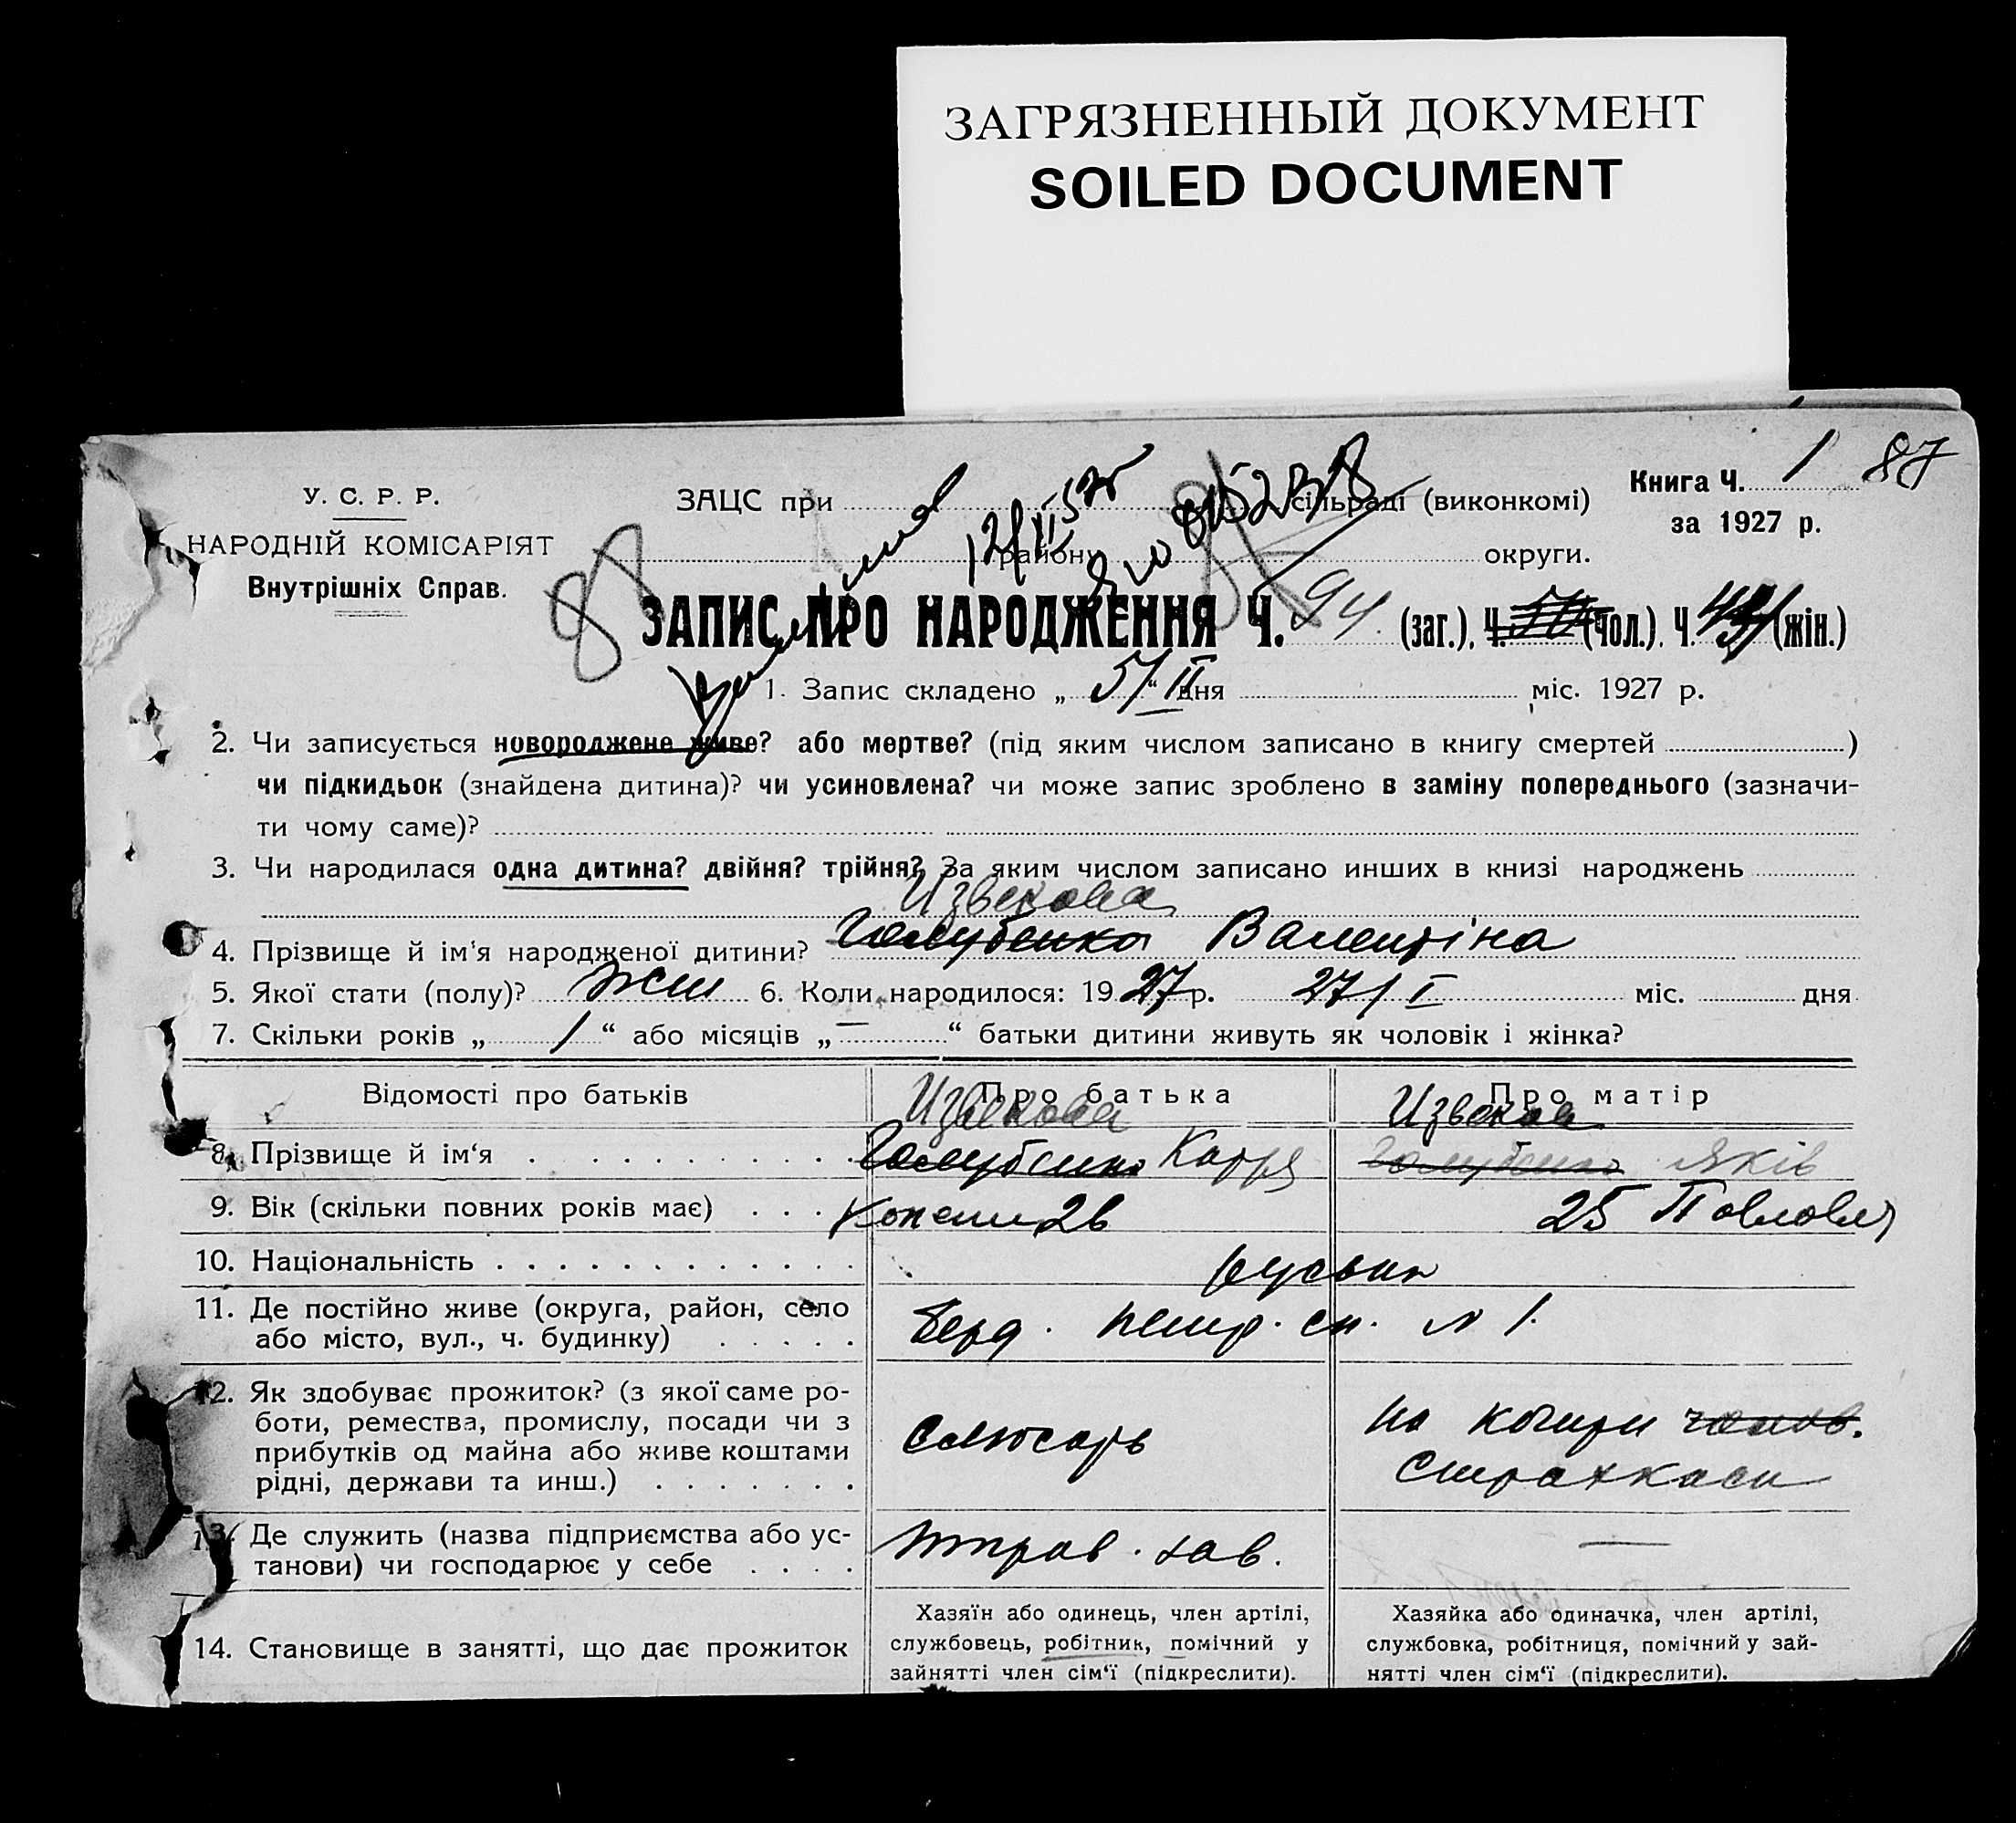 ЗАГРЯЗНЕННЫЙ ДОКУМЕНТ
SOILED DOCUMENT
У. С. Р. Р.
НАРОДНІЙ КОМІСАРІЯТ
Внутрішніх Справ.
ЗАЦС при сільраді (виконкомі)
району округи.
Книга Ч. 1 87
за 1927 р.
88
ЗАПИС ПРО НАРОДЖЕННЯ Ч. 94. (заг.), Ч. (чол.). Ч. (жін.)
1. Запис складено „ 5/II “ дня міс. 1927 р.
2. Чи записується новороджене живе? або мертве? (під яким числом записано в книгу смертей )
чи підкидьок (знайдена дитина)? чи усиновлена? чи може запис зроблено в заміну попереднього (зазначи-
ти чому саме)?
3. Чи народилася одна дитина? двійня? трійня? За яким числом записано инших в книзі народжень
Извекова
4. Прізвище й ім‘я народженої дитини? Голубенко Валентіна
5. Якої стати (полу)? жен 6. Коли народилося: 1927 р. 27/I міс. дня
7. Скільки років „ 1 “ або місяців „ — “ батьки дитини живуть як чоловік і жінка?
Відомості про батьків Про батька Про матір
Извекова Извеков
8. Прізвище й ім‘я Голубенко Катря Голубенко Яків
9. Вік (скільки повних років має) 26 25 Павлович
10. Національність
11. Де постійно живе (округа, район, село
або місто, вул., ч. будинку)
Берд. петр. сп. № 1.
12. Як здобуває прожиток? (з якої саме ро-
боти, ремества, промислу, посади чи з
прибутків од майна або живе коштами
рідні, держави та инш.)
Слюсарь
на кошти чолов.
Страхкаси
13. Де служить (назва підприємства або ус-
танови) чи господарює у себе
зав. —
14. Становище в занятті, що дає прожиток
Хазяїн або одинець, член артілі,
службовець, робітник, помічний у
зайнятті член сім‘ї (підкреслити).
Хазяйка або одиначка, член артілі,
службовка, робітниця, помічний у зай-
нятті член сім‘ї (підкреслити).